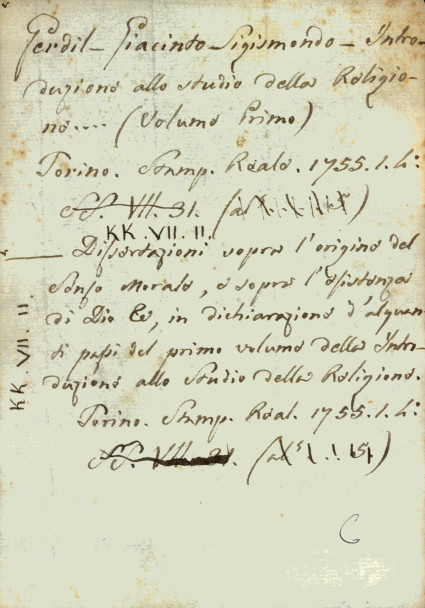 Gerdil – Giacinto – Sigismondo – Intro-
duzione allo studio della Religio-
ne.... (Volume Primo)
Torino. Stamp. Reale. 1755. 1. 4:
VII. 31.
KK. VII. II.
Dissertazioni sopra l'origine del
Senso Morale, e sopra l'esistenza
di Dio &, in dichiarazione d'alquan-
ti passi del primo volume della Intro-
duzione allo Studio della Religione.
Torino. Stamp. Real. 1755. 1. 4:
KK. VII. II